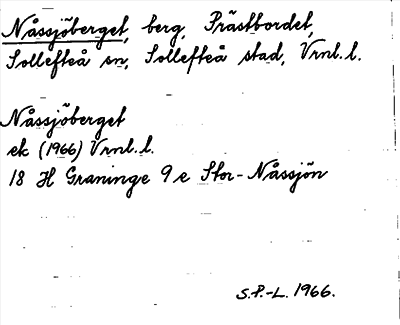 Nåssjöberget, berg, Prästbordet,
Sollefteå sn, Sollefteå stad, Vrnl.l.
Nåssjöberget
ek (1966) Vrnl.l.
18 H Graninge 9 e Stor-Nåssjön
S.P.-L. 1966.